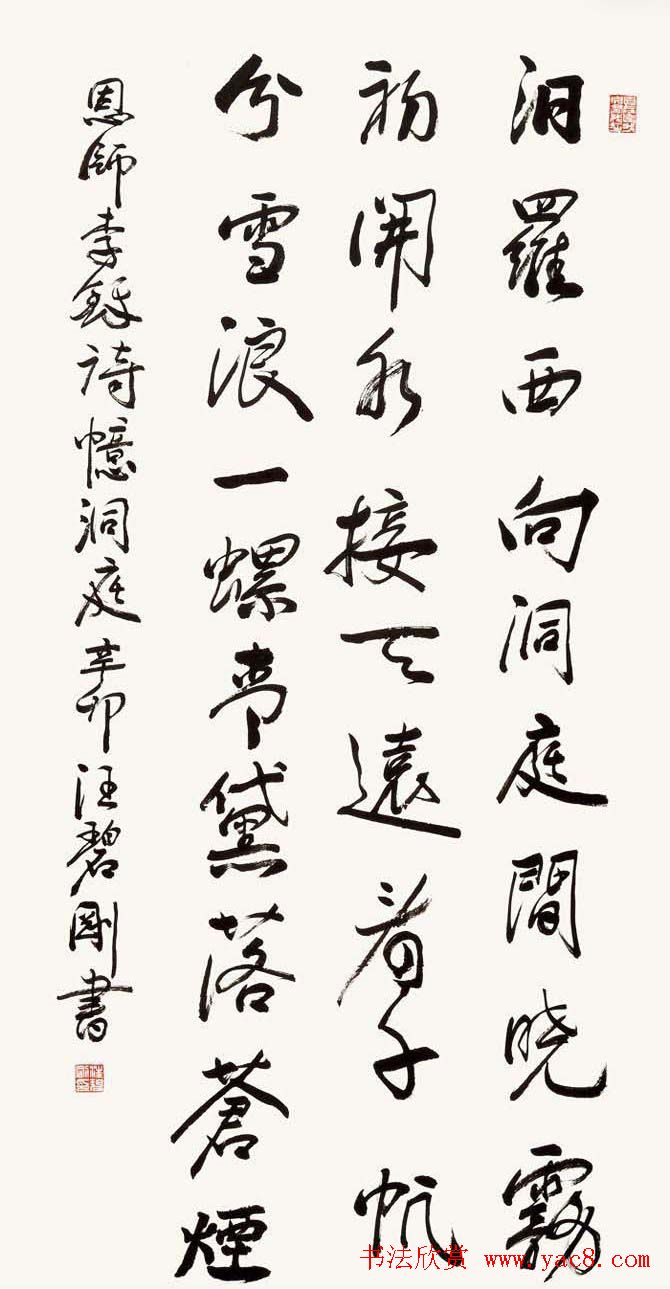 汨羅西向洞庭間曉霧
初開水接天遠看千帆
分雪浪一螺青黛落蒼煙
恩師李鐸詩憶洞庭辛卯汪碧剛書
书法欣赏 www.yac8.com